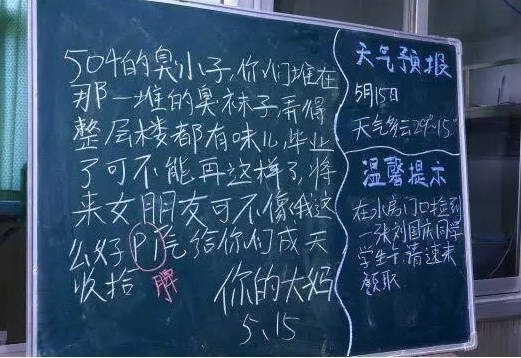 504的臭小子,你们堆在
那一堆的臭袜子弄得
整层楼都有味儿,毕业
了可不能再这样了,将
来女朋友可不像我这
么好PI气给你们成天
收拾
脾
你的大妈
5、15
天气预报
5月15日
天气多云29°~15°
温馨提示
在水房门口捡到
一张刘国庆同学
学生卡,请速来
领取